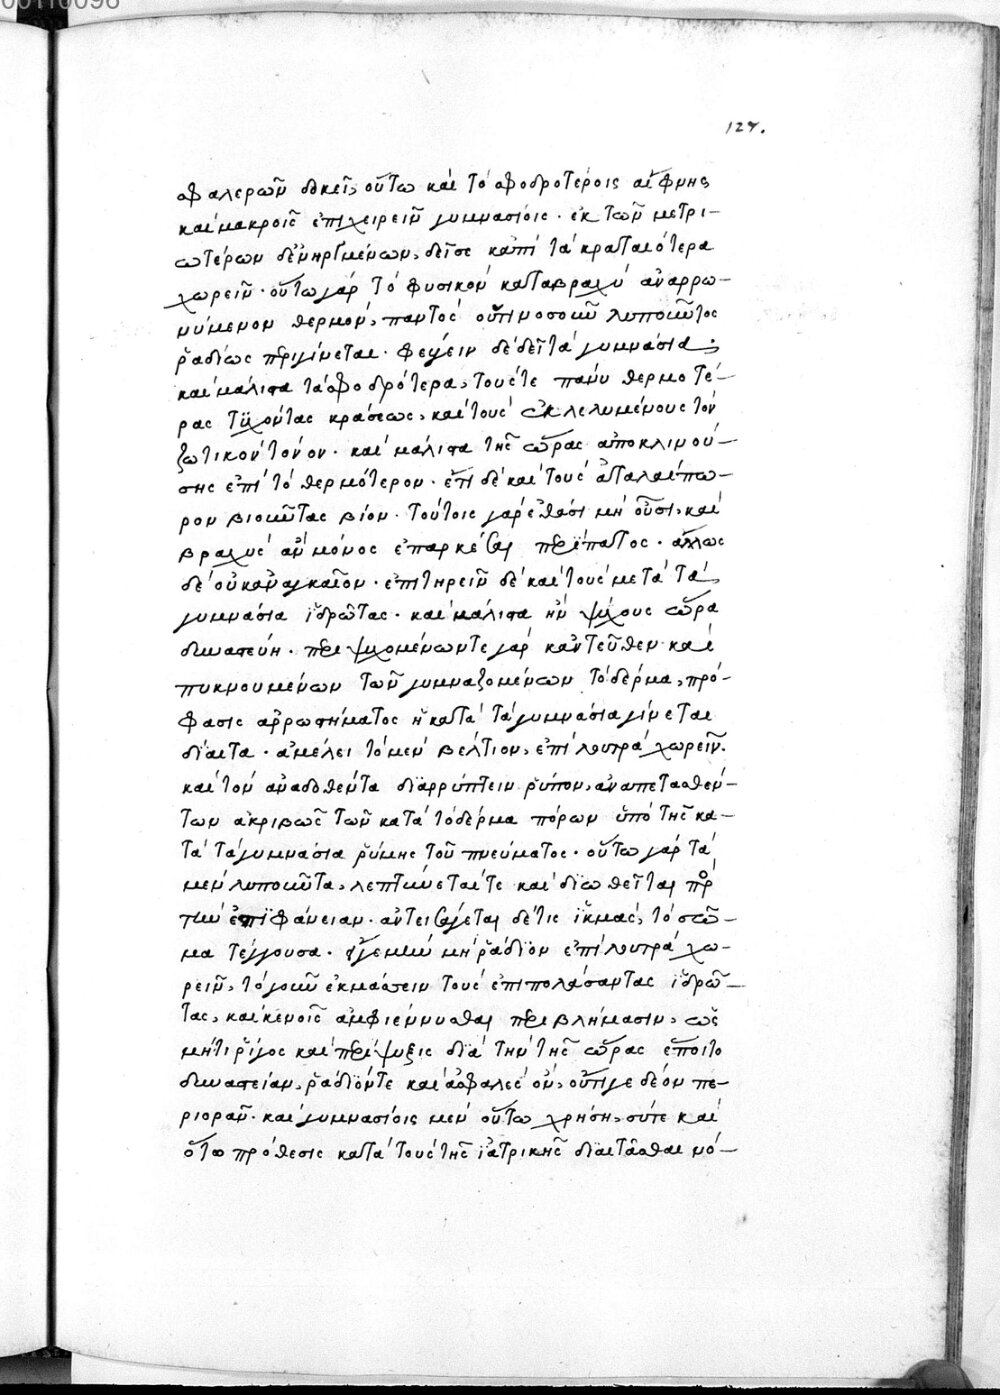 00110098
127.
σφαλερῶν δοκεῖ, οὕτω καὶ τὸ σφοδροτέροις αἴφνης
καὶ μακροῖς ἐπιχειρεῖν γυμνασίοις. ἐκ τῶν μετρι-
ωτέρων δὲ ἠργμένων, δεῖ σε κἀπὶ τὰ κραταιότερα
χωρεῖν. οὕτω γὰρ τὸ φυσικὸν καταβραχὺ ἀναρρω-
νύμενον θερμὸν, παντὸς οὑτινοσοῦν λυποῦντος
ῥαδίως περιγίνεται. φεύγειν δὲ δεῖ τὰ γυμνάσια,
καὶ μάλιστα τὰ σφοδρότερα, τούς τε πάνυ θερμοτέ-
ρας τυχόντας κράσεως, καὶ τοὺς ἐκλελυμένους τὸν
ζωτικὸν τόνον. καὶ μάλιστα τῆς ὥρας ἀποκλινού-
σης ἐπὶ τὸ θερμότερον. ἔτι δὲ καὶ τοὺς ἀταλαίπω-
ρον βιοῦντας βίον. τούτοις γὰρ ἐθάσι μὴ οὖσι, καὶ
βραχὺς ἂν μόνος ἐπαρκέσαι περίπατος. ἄλλως
δὲ οὐκ ἀναγκαῖον. ἐπιτηρεῖν δὲ καὶ τοὺς μετὰ τὰ
γυμνάσια ἱδρῶτας. καὶ μάλιστα ἢν ψύχους ὥρα
δυναστεύῃ. περιψυχομένων τε γὰρ κἀντεῦθεν καὶ
πυκνουμένων τῶν γυμναζομένων τὸ δέρμα, πρό-
φασις ἀρρωστήματος ἡ κατὰ τὰ γυμνάσια γίνεται
δίαιτα. ἀμέλει τὸ μὲν βέλτιον, ἐπὶ λουτρὰ χωρεῖν.
καὶ τὸν ἀναδοθέντα διαρρύπτειν ῥύπον, ἀναπετασθέν-
των ἀκριβῶς τῶν κατὰ τὸ δέρμα πόρων ὑπὸ τῆς κα-
τὰ τὰ γυμνάσια ῥύμης τοῦ πνεύματος. οὕτω γὰρ τὰ
μὲν λυποῦντα, λεπτύνεταί τε καὶ διωθεῖται πρὸς
τὴν ἐπιφάνειαν. ἀντεισάγεται δέ τις ἰκμὰς, τὸ σῶ-
μα τέγγουσα. εἴ γε μὴν μὴ ῥάδιον ἐπὶ λουτρὰ χω-
ρεῖν, τὸ γοῦν ἐκμάσσειν τοὺς ἐπιπολάσαντας ἱδρῶ-
τας, καὶ κενοῖς ἀμφιέννυσθαι περιβλήμασιν, ὡς
μήτι ῥῖγος καὶ περίψυξις διὰ τὴν τῆς ὥρας ἕποιτο
δυναστείαν, ῥάδιόν τε καὶ ἀσφαλὲς ὂν, οὔτι γε δέον πε-
ριορᾶν. καὶ γυμνασίοις μὲν οὕτω χρήσῃ, σύ τε καὶ
ὅτῳ πρόθεσις κατὰ τοὺς τῆς ἰατρικῆς διαιτᾶσθαι νό-